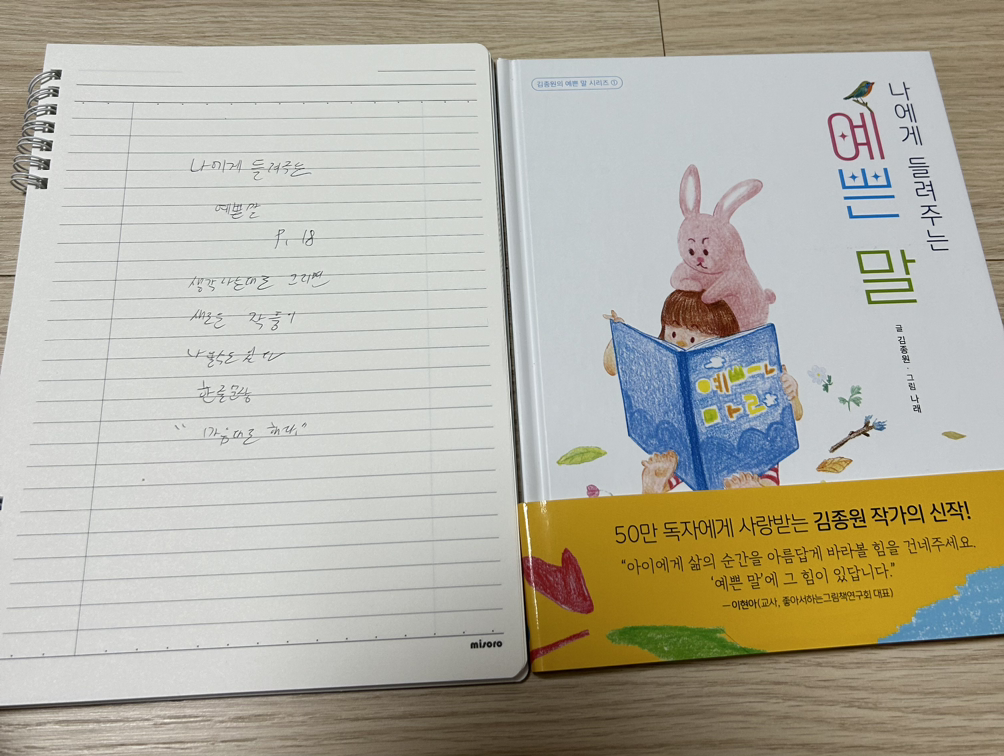 나에게 들려주는
예쁜말
P. 18
생각나는대로 그리면
새로운
한줄문장
" 마음대로 해라."
misoro
김종원의 예쁜 말 시리즈 ①
나에게 들려주는
예쁜 말
글 김종원·그림 나래
예쁘ㅡㄴ
마ㄹ
50만 독자에게 사랑받는 김종원 작가의 신작!
"아이에게 삶의 순간을 아름답게 바라볼 힘을 건네주세요.
'예쁜 말'에 그 힘이 있답니다."
—이현아(교사, 좋아서하는그림책연구회 대표)